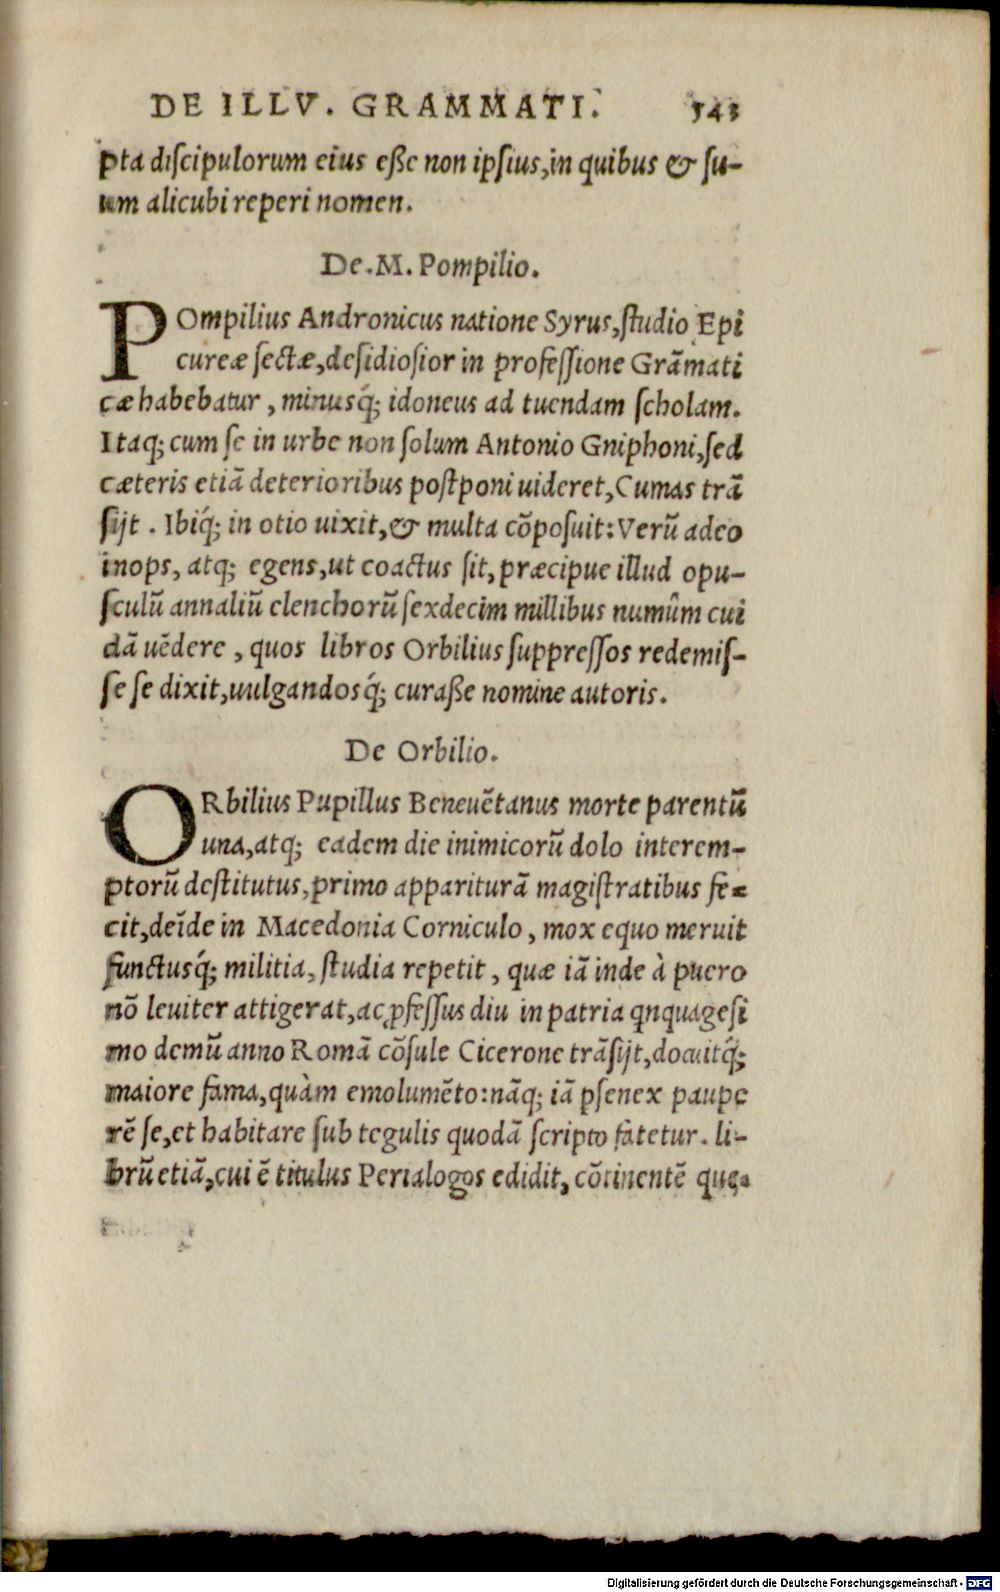 DE ILLV. GRAMMATI. 543
pta discipulorum eius eſſe non ipſius, in quibus & ſu-
um alicubi reperi nomen.
De .M. Pompilio.
POmpilius Andronicus natione Syrus, ſtudio Epi
cureæ ſectæ, deſidioſior in profeſſione Grāmati
cæ habebatur, minusq́; idoneus ad tuendam ſcholam.
Itaq; cum ſe in urbe non ſolum Antonio Gniphoni, ſed
cæteris etiā deterioribus poſtponi uideret, Cumas trā
ſijt. Ibiq́; in otio uixit, & multa cōpoſuit: Verū adeo
inops, atq; egens, ut coactus ſit, præcipue illud opu-
ſculū annaliū elenchorū ſexdecim millibus numûm cui
dā uēdere, quos libros Orbilius ſuppreſſos redemiſ-
ſe ſe dixit, uulgandosq́; curaſſe nomine autoris.
De Orbilio.
ORbilius Pupillus Beneuētanus morte parentū
una, atq; eadem die inimicorū dolo interem-
ptorū deſtitutus, primo appariturā magiſtratibus fe-
cit, deīde in Macedonia Corniculo, mox equo meruit
functusq́; militia, ſtudia repetit, quæ iā inde à puero
nō leuiter attigerat, ac ꝓfeſſus diu in patria qnquageſi
mo demū anno Romā cōſule Cicerone trāſijt, docuitq́;
maiore fama, quàm emolumēto: nāq; iā pſenex paupe
rē ſe, et habitare ſub tegulis quodā ſcripto fatetur. li-
brū etiā, cui ē titulus Perialogos edidit, cōtinentē que-
Digitalisierung gefördert durch die Deutsche Forschungsgemeinschaft - DFG